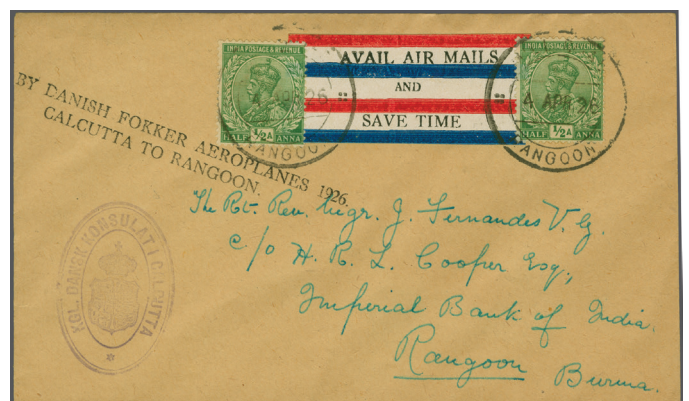 INDIA POSTAGE & REVENUE
HALF ½A ANNA
AVAIL AIR MAILS
AND
SAVE TIME
INDIA POSTAGE & REVENUE
HALF ½A ANNA
4 APR 26
RANGOON
4 APR 26
RANGOON
BY DANISH FOKKER AEROPLANES 1926.
CALCUTTA TO RANGOON.
The Rt. Rev. Msgr. J. Fernandes V. G.
c/o H. R. L. Cooper Esq,
Imperial Bank of India
Rangoon
Burma.
KGL. DANSK KONSULAT I CALCUTTA